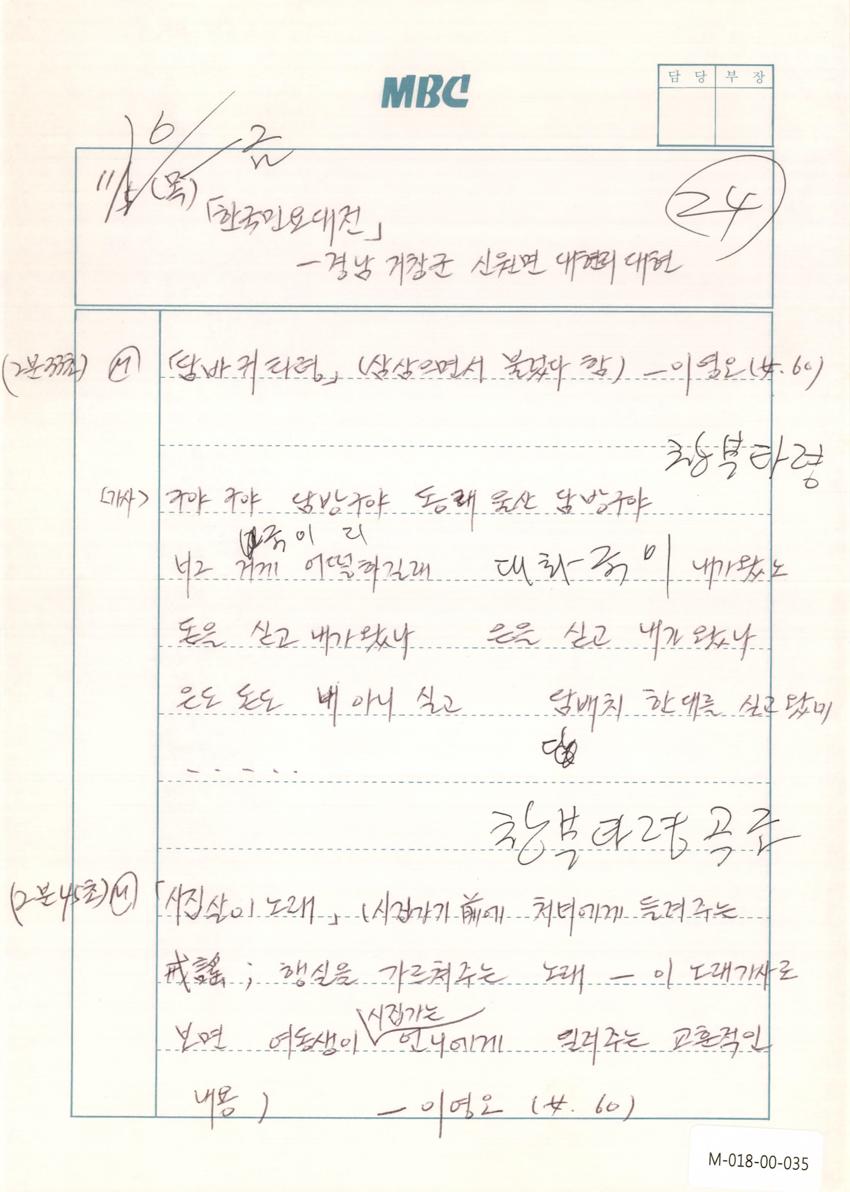 MBC
담 당 부 장
6/ 금
11/5 (목)
24
「한국민요대전」
— 경남 거창군 신원면 대현리 대현
(2분33초) (M) 「담바귀타령」 (삼삼으면서 불렀다 함) — 이영오(女. 60)
창부타령
<가사> 구야 구야 담방구야 동래 울산 담방구야
국이 리
너그 어떨하길래 대화국이 내가왔노
돈을 싣고 내가왔나 은을 싣고 내가 왔나
은도 돈도 내 아니 싣고 담배치 한대를 싣고 왔미
담
- - - - - -
창부타령곡조
(2분45초) (M) 「시집살이 노래」 (시집가기 前에 처녀에게 들려주는
戒謠 ; 행실을 가르쳐주는 노래 — 이 노래가사로
시집가는
보면 여동생이 언니에게 일러주는 교훈적인
내용 ) — 이영오 (女. 60)
M-018-00-035